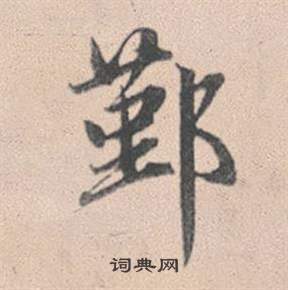 鄞
词典网